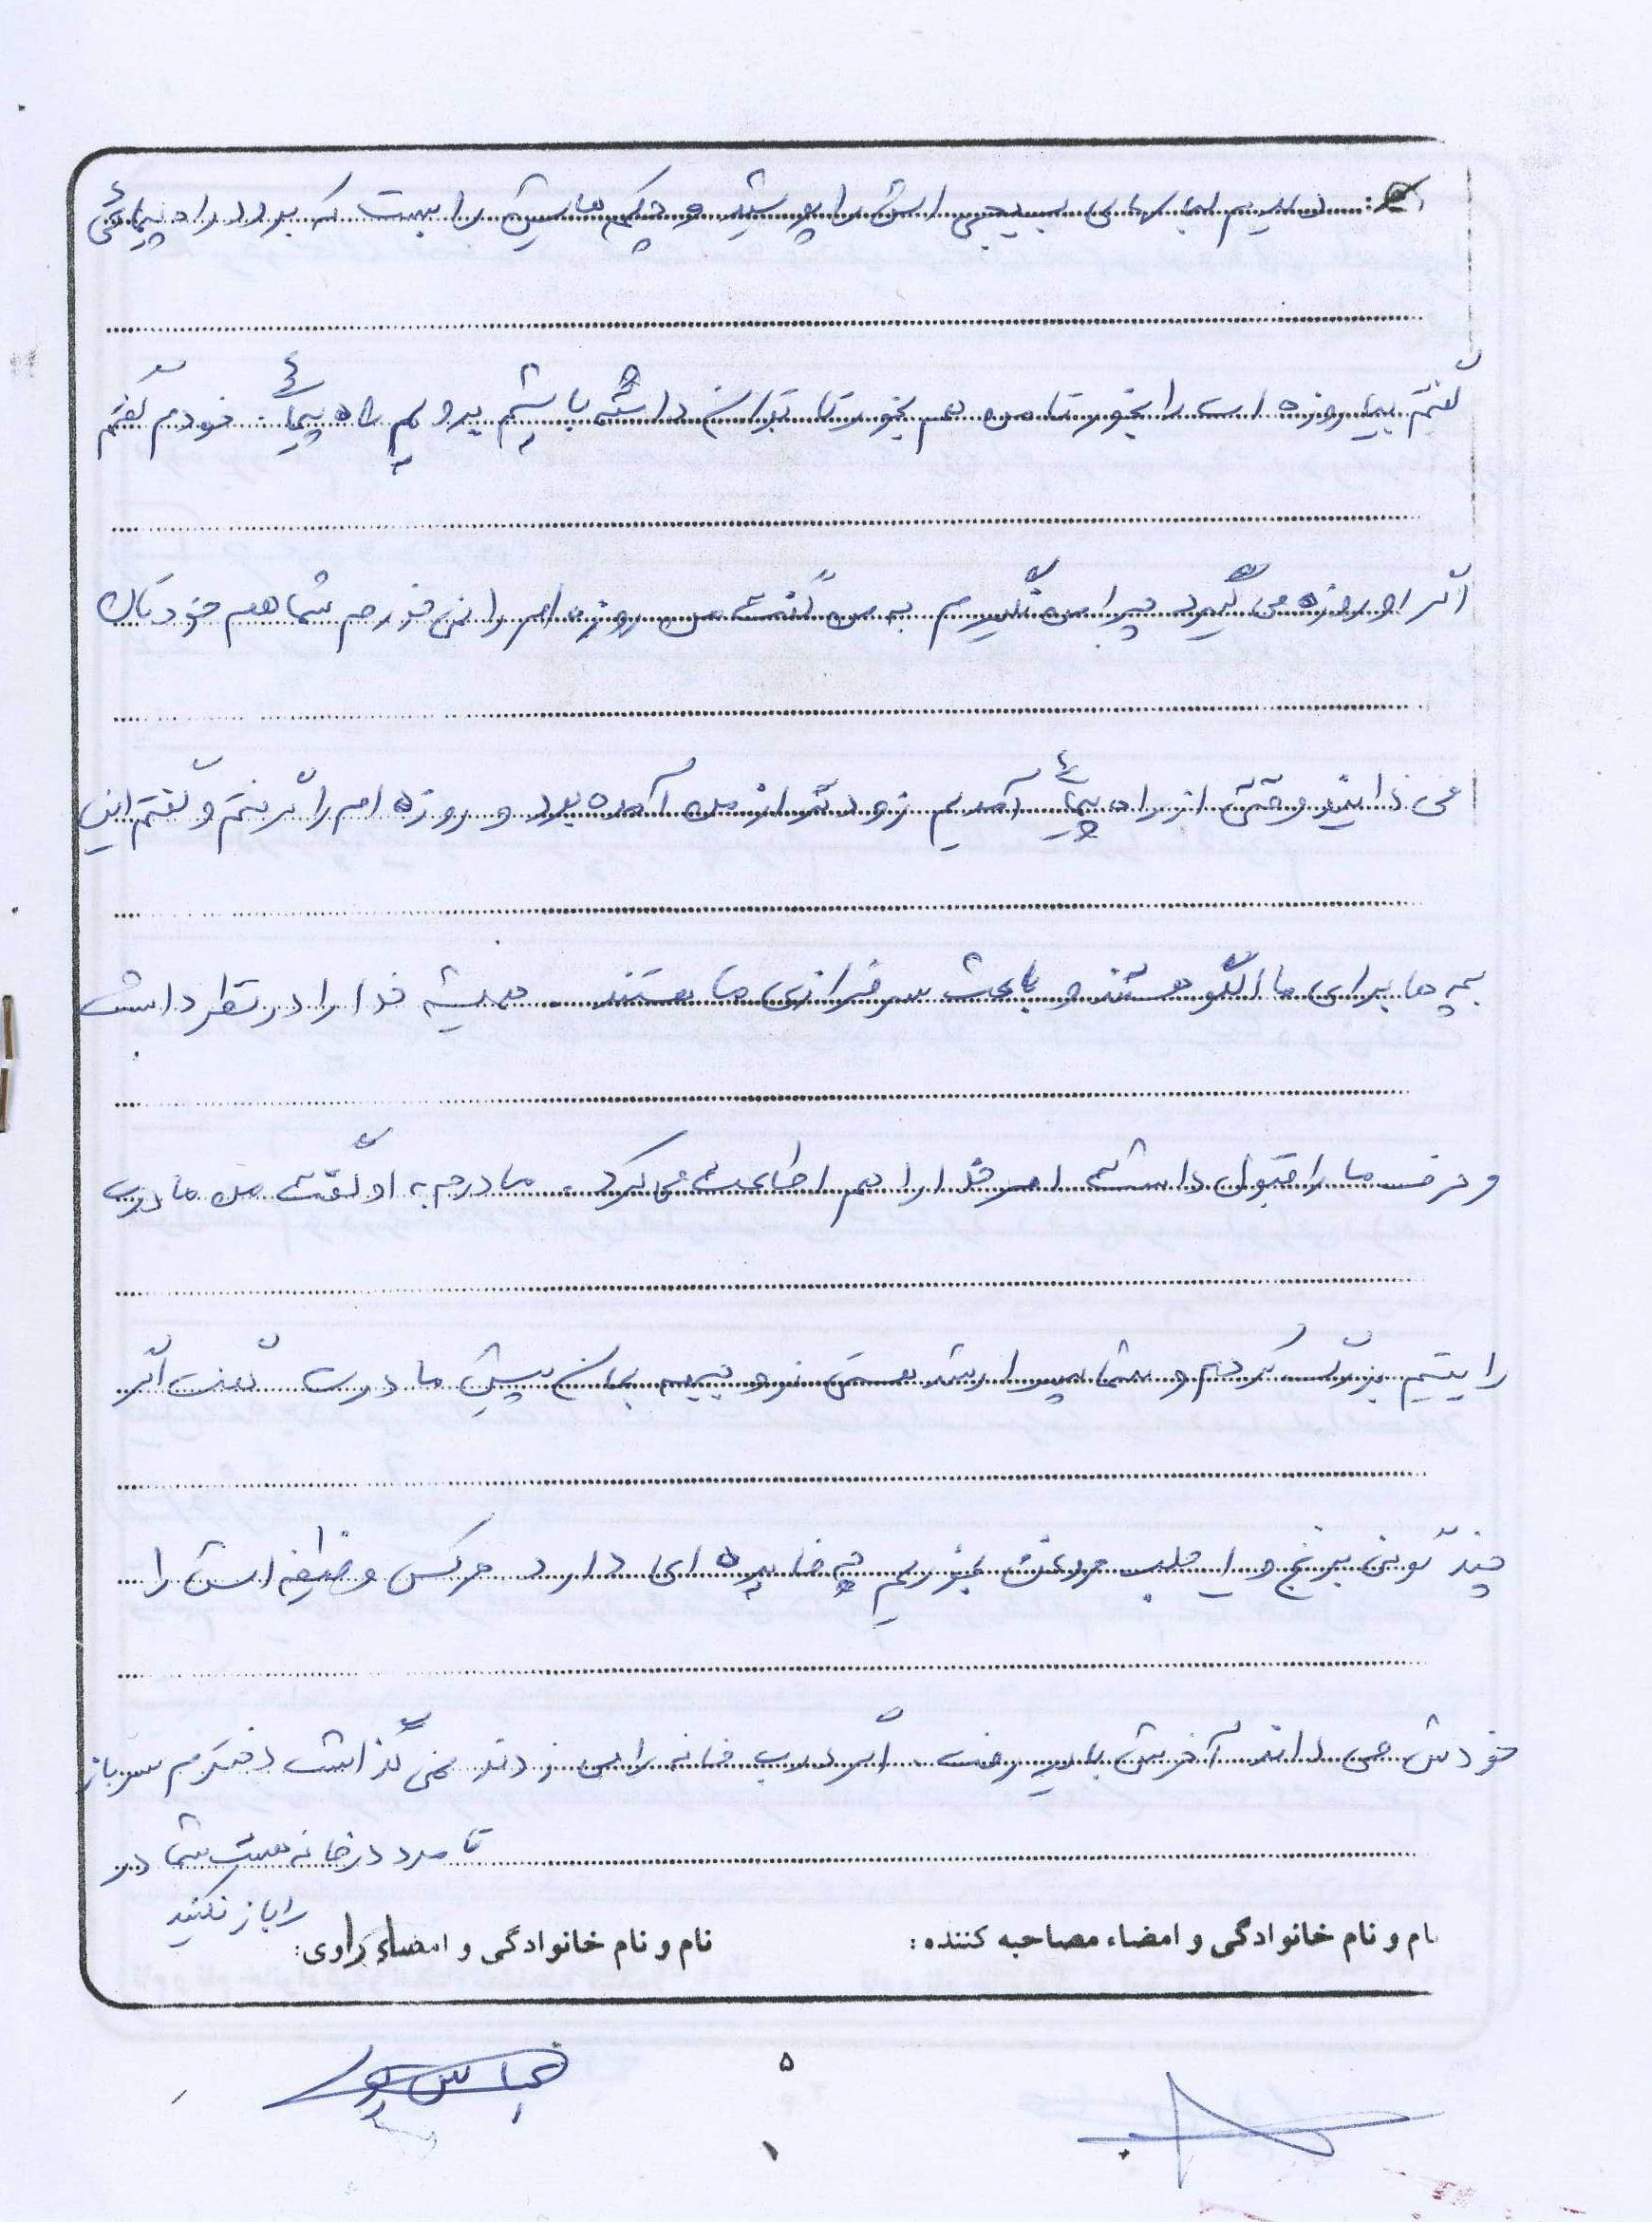 دیدیم لباسهای بسیجی اش را پوشید و چکمه هایش را بست که برود راه پیمائی
گفتم بیا روزه ات را بخور تا من هم بخورم تا توان داشته باشیم برویم راه پیمائی. خودم گفتم
اگر او روزه می گیرد چرا من نگیرم به من گفت من روزه ام را نمی خورم شما هم خودتان
می دانید وقتی از راه پیمائی آمدیم زودتر از من آمده بود و روزه ام را گرفتم و گفتم این
بچه ها برای ما الگو هستند و باعث سرفرازی ما هستند. همیشه خدا را در نظر داشت
و حرف ما را قبول داشت امر خدا را هم اطاعت می کرد. مادرم به او گفت من مادرت
را یتیم بزرگ کردم و شما پسر ارشد هستی نرو جبهه بمان پیش مادرت گفت اگر
چند گونی برنج و حلب روغن بخوریم چه فایده ای دارد هرکس وظیفه اش را
خودش می داند آخرش باید رفت. اگر درب خانه را می زدند نمی گذاشت دخترم سرباز
تا مرد در خانه هست شما در
را باز نکنید
نام و نام خانوادگی و امضاء مصاحبه کننده:
نام و نام خانوادگی و امضاء راوی:
۵
۱